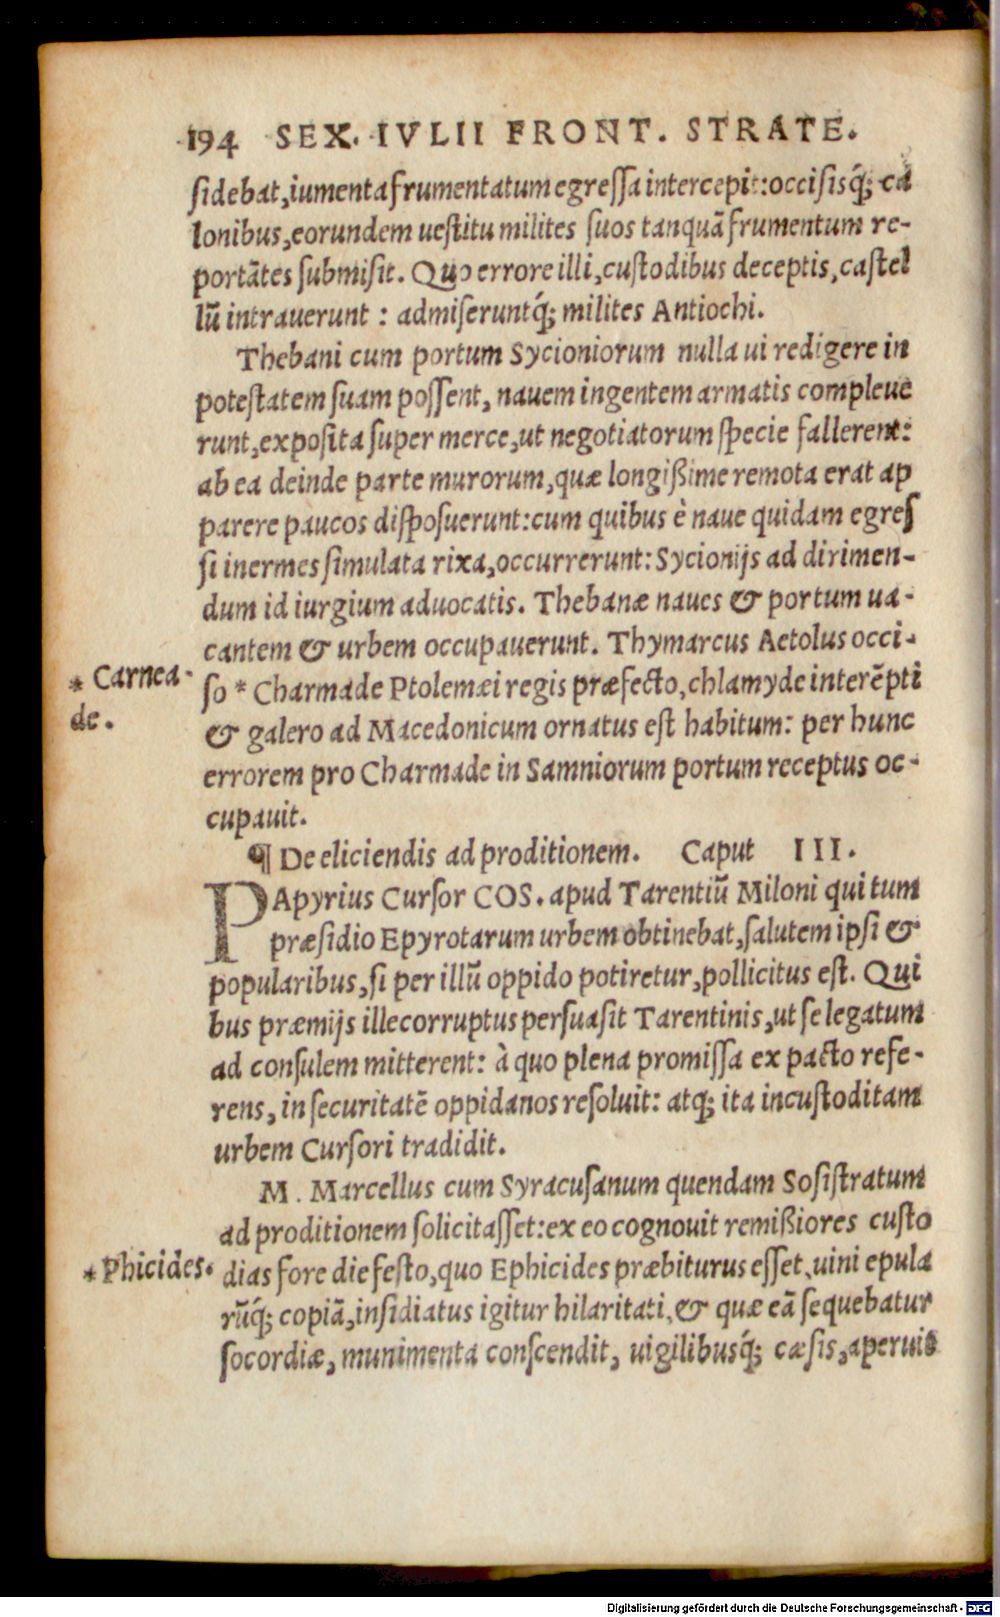 194 SEX. IVLII FRONT. STRATE.
sidebat, iumenta frumentatum egressa intercepit: occisisq́; ca
lonibus, eorundem uestitu milites suos tanquã frumentum re-
portãtes submisit. Quo errore illi, custodibus deceptis, castel
lũ intrauerunt : admiseruntq́; milites Antiochi.
Thebani cum portum Sycioniorum nulla ui redigere in
potestatem suam possent, nauem ingentem armatis compleue
runt, exposita super merce, ut negotiatorum specie fallerent:
ab ea deinde parte murorum, quæ longißime remota erat ap
parere paucos disposuerunt: cum quibus è naue quidam egres
si inermes simulata rixa, occurrerunt: Sycionijs ad dirimen-
dum id iurgium aduocatis. Thebanæ naues & portum ua-
cantem & urbem occupauerunt. Thymarcus Aetolus occi-
* Carnea-
de.
so * Charmade Ptolemæi regis præfecto, chlamyde interẽpti
& galero ad Macedonicum ornatus est habitum: per hunc
errorem pro Charmade in Samniorum portum receptus oc-
cupauit.
¶ De eliciendis ad proditionem. Caput III.
PApyrius Cursor COS. apud Tarentiũ Miloni qui tum
præsidio Epyrotarum urbem obtinebat, salutem ipsi &
popularibus, si per illũ oppido potiretur, pollicitus est. Qui
bus præmijs ille corruptus persuasit Tarentinis, ut se legatum
ad consulem mitterent: à quo plena promissa ex pacto refe-
rens, in securitatẽ oppidanos resoluit: atq; ita incustoditam
urbem Cursori tradidit.
M. Marcellus cum Syracusanum quendam Sosistratum
ad proditionem solicitasset: ex eo cognouit remißiores custo
* Phicides.
dias fore die festo, quo Ephicides præbiturus esset, uini epula
rũq́; copiã, insidiatus igitur hilaritati, & quæ eã sequebatur
socordiæ, munimenta conscendit, uigilibusq́; cæsis, aperuit
Digitalisierung gefördert durch die Deutsche Forschungsgemeinschaft - DFG